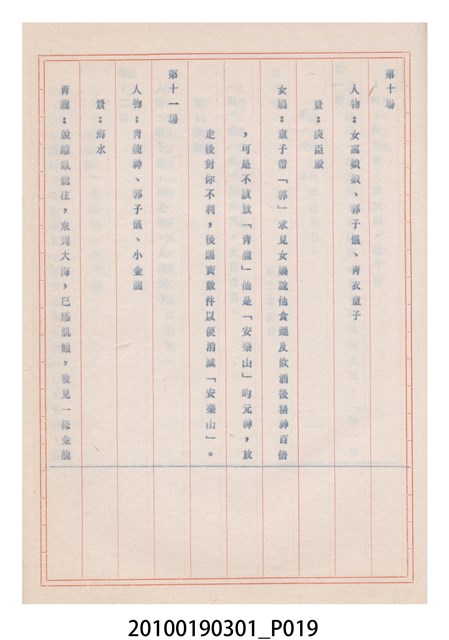 第十場
人物：女媧娘娘、郭子儀、青衣童子
景：廣臣殿
女媧：童子帶「郭」求見女媧說他食麵及飲酒後精神百倍
，可是不該放「青龍」他是「安祿山」的元神，放
走後對你不利，後賜寶數件以便消滅「安祿山」。
第十一場
人物：青龍神、郭子儀、小金龍
景：海水
青龍：說離臥龍汪，來到大海，已感飢餓，發見一條金龍
20100190301_P019